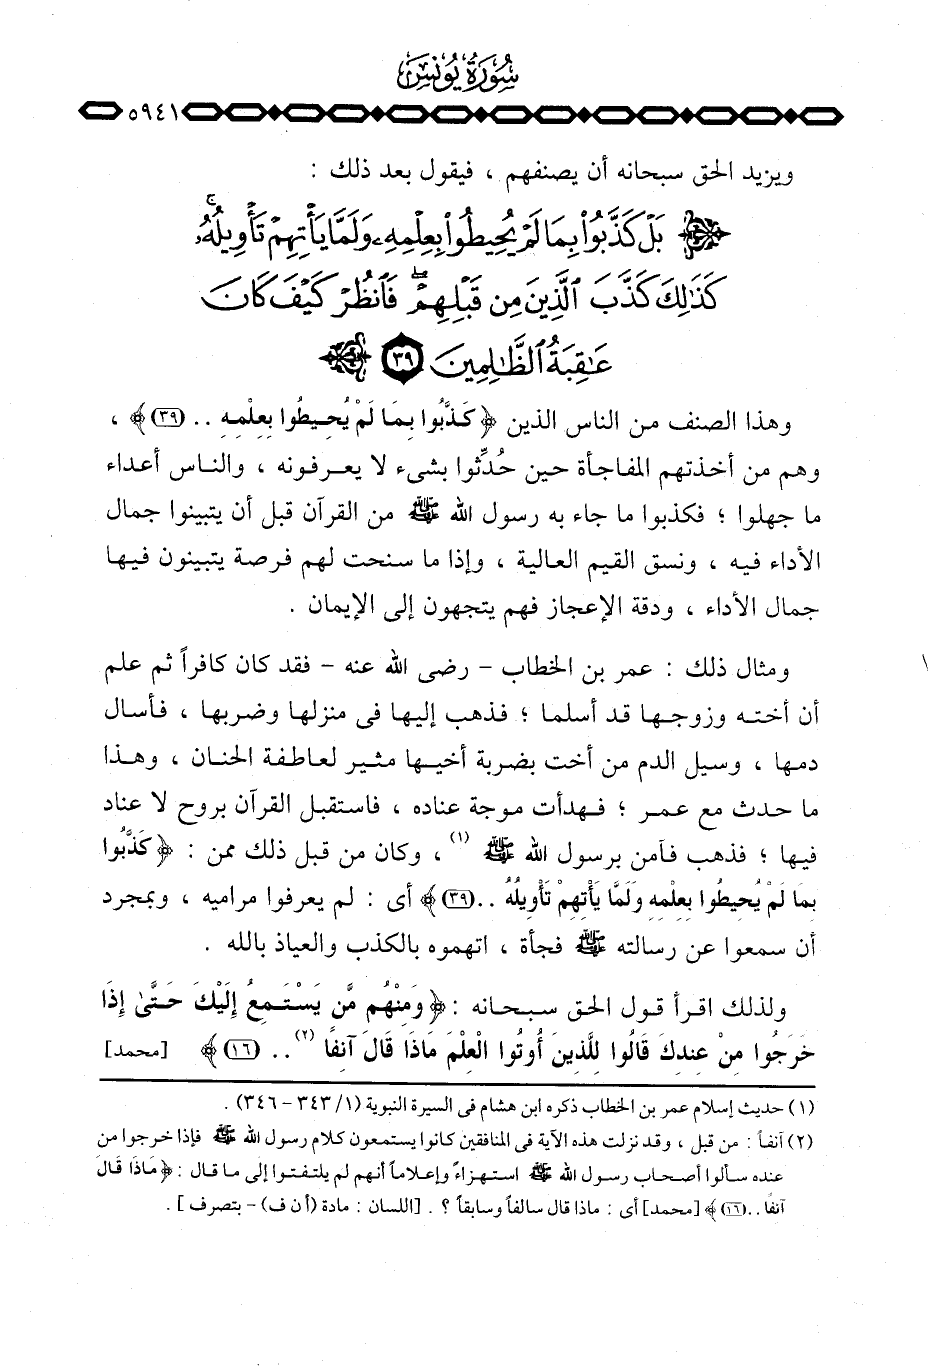 سُورَةُ يُونُسَ
٥٩٤١
ويزيد الحق سبحانه أن يصنفهم ، فيقول بعد ذلك :
بَلْ كَذَّبُوا۟ بِمَا لَمْ يُحِيطُوا۟ بِعِلْمِهِۦ وَلَمَّا يَأْتِهِمْ تَأْوِيلُهُۥ ۚ
كَذَٰلِكَ كَذَّبَ ٱلَّذِينَ مِن قَبْلِهِمْ ۖ فَٱنظُرْ كَيْفَ كَانَ
عَٰقِبَةُ ٱلظَّٰلِمِينَ ٣٩
وهذا الصنف من الناس الذين ﴿ كَذَّبُوا بِمَا لَمْ يُحِيطُوا بِعِلْمِهِ .. (٣٩) ﴾ ،
وهم من أخذتهم المفاجأة حين حُدِّثوا بشىء لا يعرفونه ، والناس أعداء
ما جهلوا ؛ فكذبوا ما جاء به رسول الله ﷺ من القرآن قبل أن يتبينوا جمال
الأداء فيه ، ونسق القيم العالية ، وإذا ما سنحت لهم فرصة يتبينون فيها
جمال الأداء ، ودقة الإعجاز فهم يتجهون إلى الإيمان .
ومثال ذلك : عمر بن الخطاب - رضى الله عنه - فقد كان كافراً ثم علم
أن أخته وزوجها قد أسلما ؛ فذهب إليها فى منزلها وضربها ، فأسال
دمها ، وسيل الدم من أخت بضربة أخيها مثير لعاطفة الحنان ، وهذا
ما حدث مع عمر ؛ فهدأت موجة عناده ، فاستقبل القرآن بروح لا عناد
فيها ؛ فذهب فآمن برسول الله ﷺ (١) ، وكان من قبل ذلك ممن : ﴿ كَذَّبُوا
بِمَا لَمْ يُحِيطُوا بِعِلْمِهِ وَلَمَّا يَأْتِهِمْ تَأْوِيلُهُ .. (٣٩) ﴾ أى : لم يعرفوا مراميه ، وبمجرد
أن سمعوا عن رسالته ﷺ فجأة ، اتهموه بالكذب والعياذ بالله .
ولذلك اقرأ قول الحق سبحانه : ﴿ وَمِنْهُم مَّن يَسْتَمِعُ إِلَيْكَ حَتَّىٰ إِذَا
خَرَجُوا مِنْ عِندِكَ قَالُوا لِلَّذِينَ أُوتُوا الْعِلْمَ مَاذَا قَالَ آنِفًا (٢) .. (١٦) ﴾ [محمد]
(١) حديث إسلام عمر بن الخطاب ذكره ابن هشام فى السيرة النبوية (١/ ٣٤٣ - ٣٤٦) .
(٢) آنفاً : من قبل ، وقد نزلت هذه الآية فى المنافقين كانوا يستمعون كلام رسول الله ﷺ فإذا خرجوا من
عنده سألوا أصحاب رسول الله ﷺ استهزاءً وإعلاماً أنهم لم يلتفتوا إلى ما قال : ﴿ مَاذَا قَالَ
آنِفًا .. (١٦) ﴾ [محمد] أى : ماذا قال سالفاً وسابقاً ؟ . [اللسان : مادة (أ ن ف) - بتصرف ] .